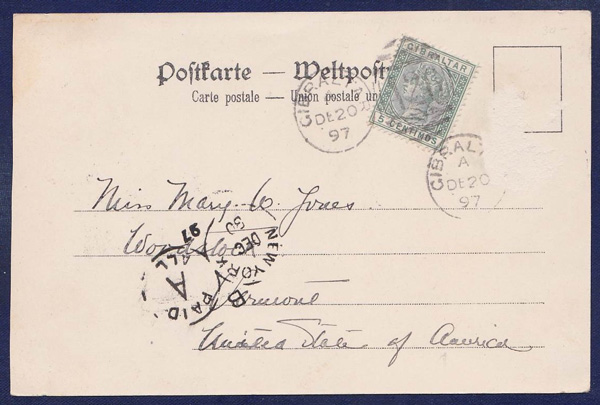 Postkarte — Weltpost
Carte postale — Union postale un
GIBRALTAR
5 CENTIMOS
GIBRALTA
A
DE 20
97
GIBRAL
A
DE 20
97
Miss Mary C. Jones
Woodstock
Vermont
United States of America
NEW YORK
DEC
30
97
PAID
A
ALL
B